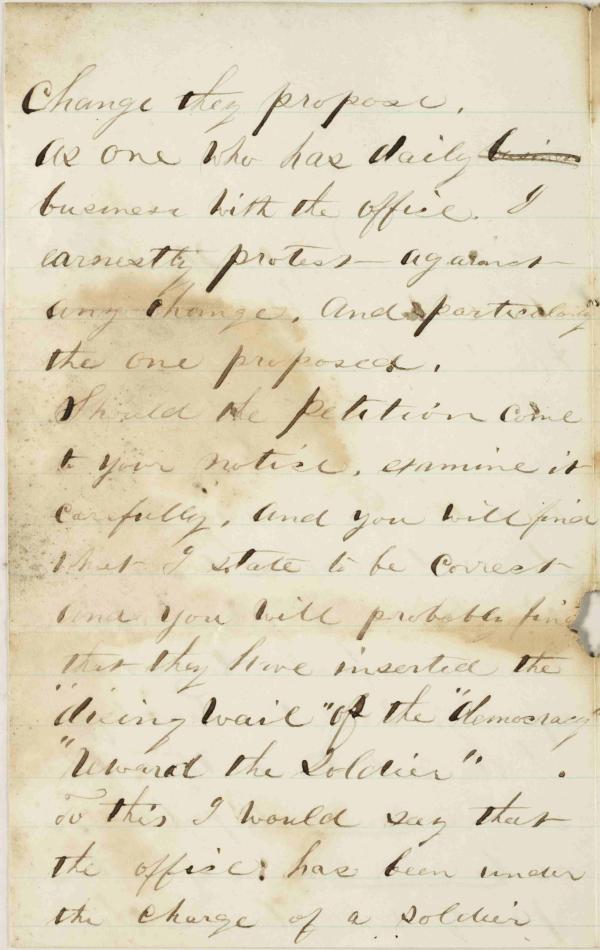 Change they propose.
As one who has daily busines
business with the office. I
earnestly protest against
any change. And particularly
the one proposed.
Should the petition come
to your notice, examine it
carefully, and you will find
what I state to be correct
and you will probably find
that they have inserted the
"dieing wail" of the "democracy
"Reward the Soldier".
To this I would say that
the office: has been under
the charge of a soldier